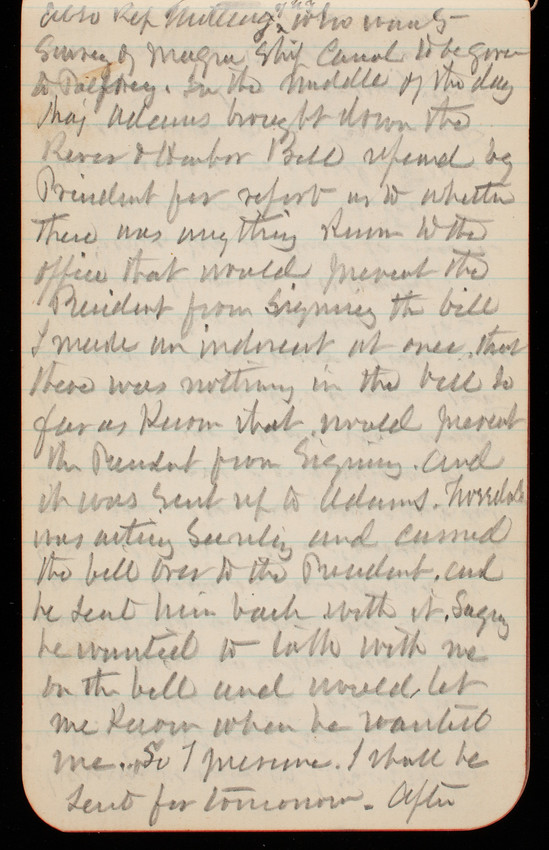 also Rep who wants
Survey of Niagra Ship Canal to be given
to Palfrey. In the middle of the day
Maj Adams brought down the
River & Harbor Bill refered by
President for report as to whether
there was anything known to the
office that would prevent the
President from signing the bill
I made an indorsent at once, that
there was nothing in the bill so
far as known that would prevent
the President from signing. and
it was sent up to Adams. Tweedale
was acting Secretary and carried
the bill over to the President. and
he sent him back with it. Saying
he wanted to talk with me
on the bill and would, let
me know when he wanted
me. So I presume. I shall be
sent for tomorrow. After